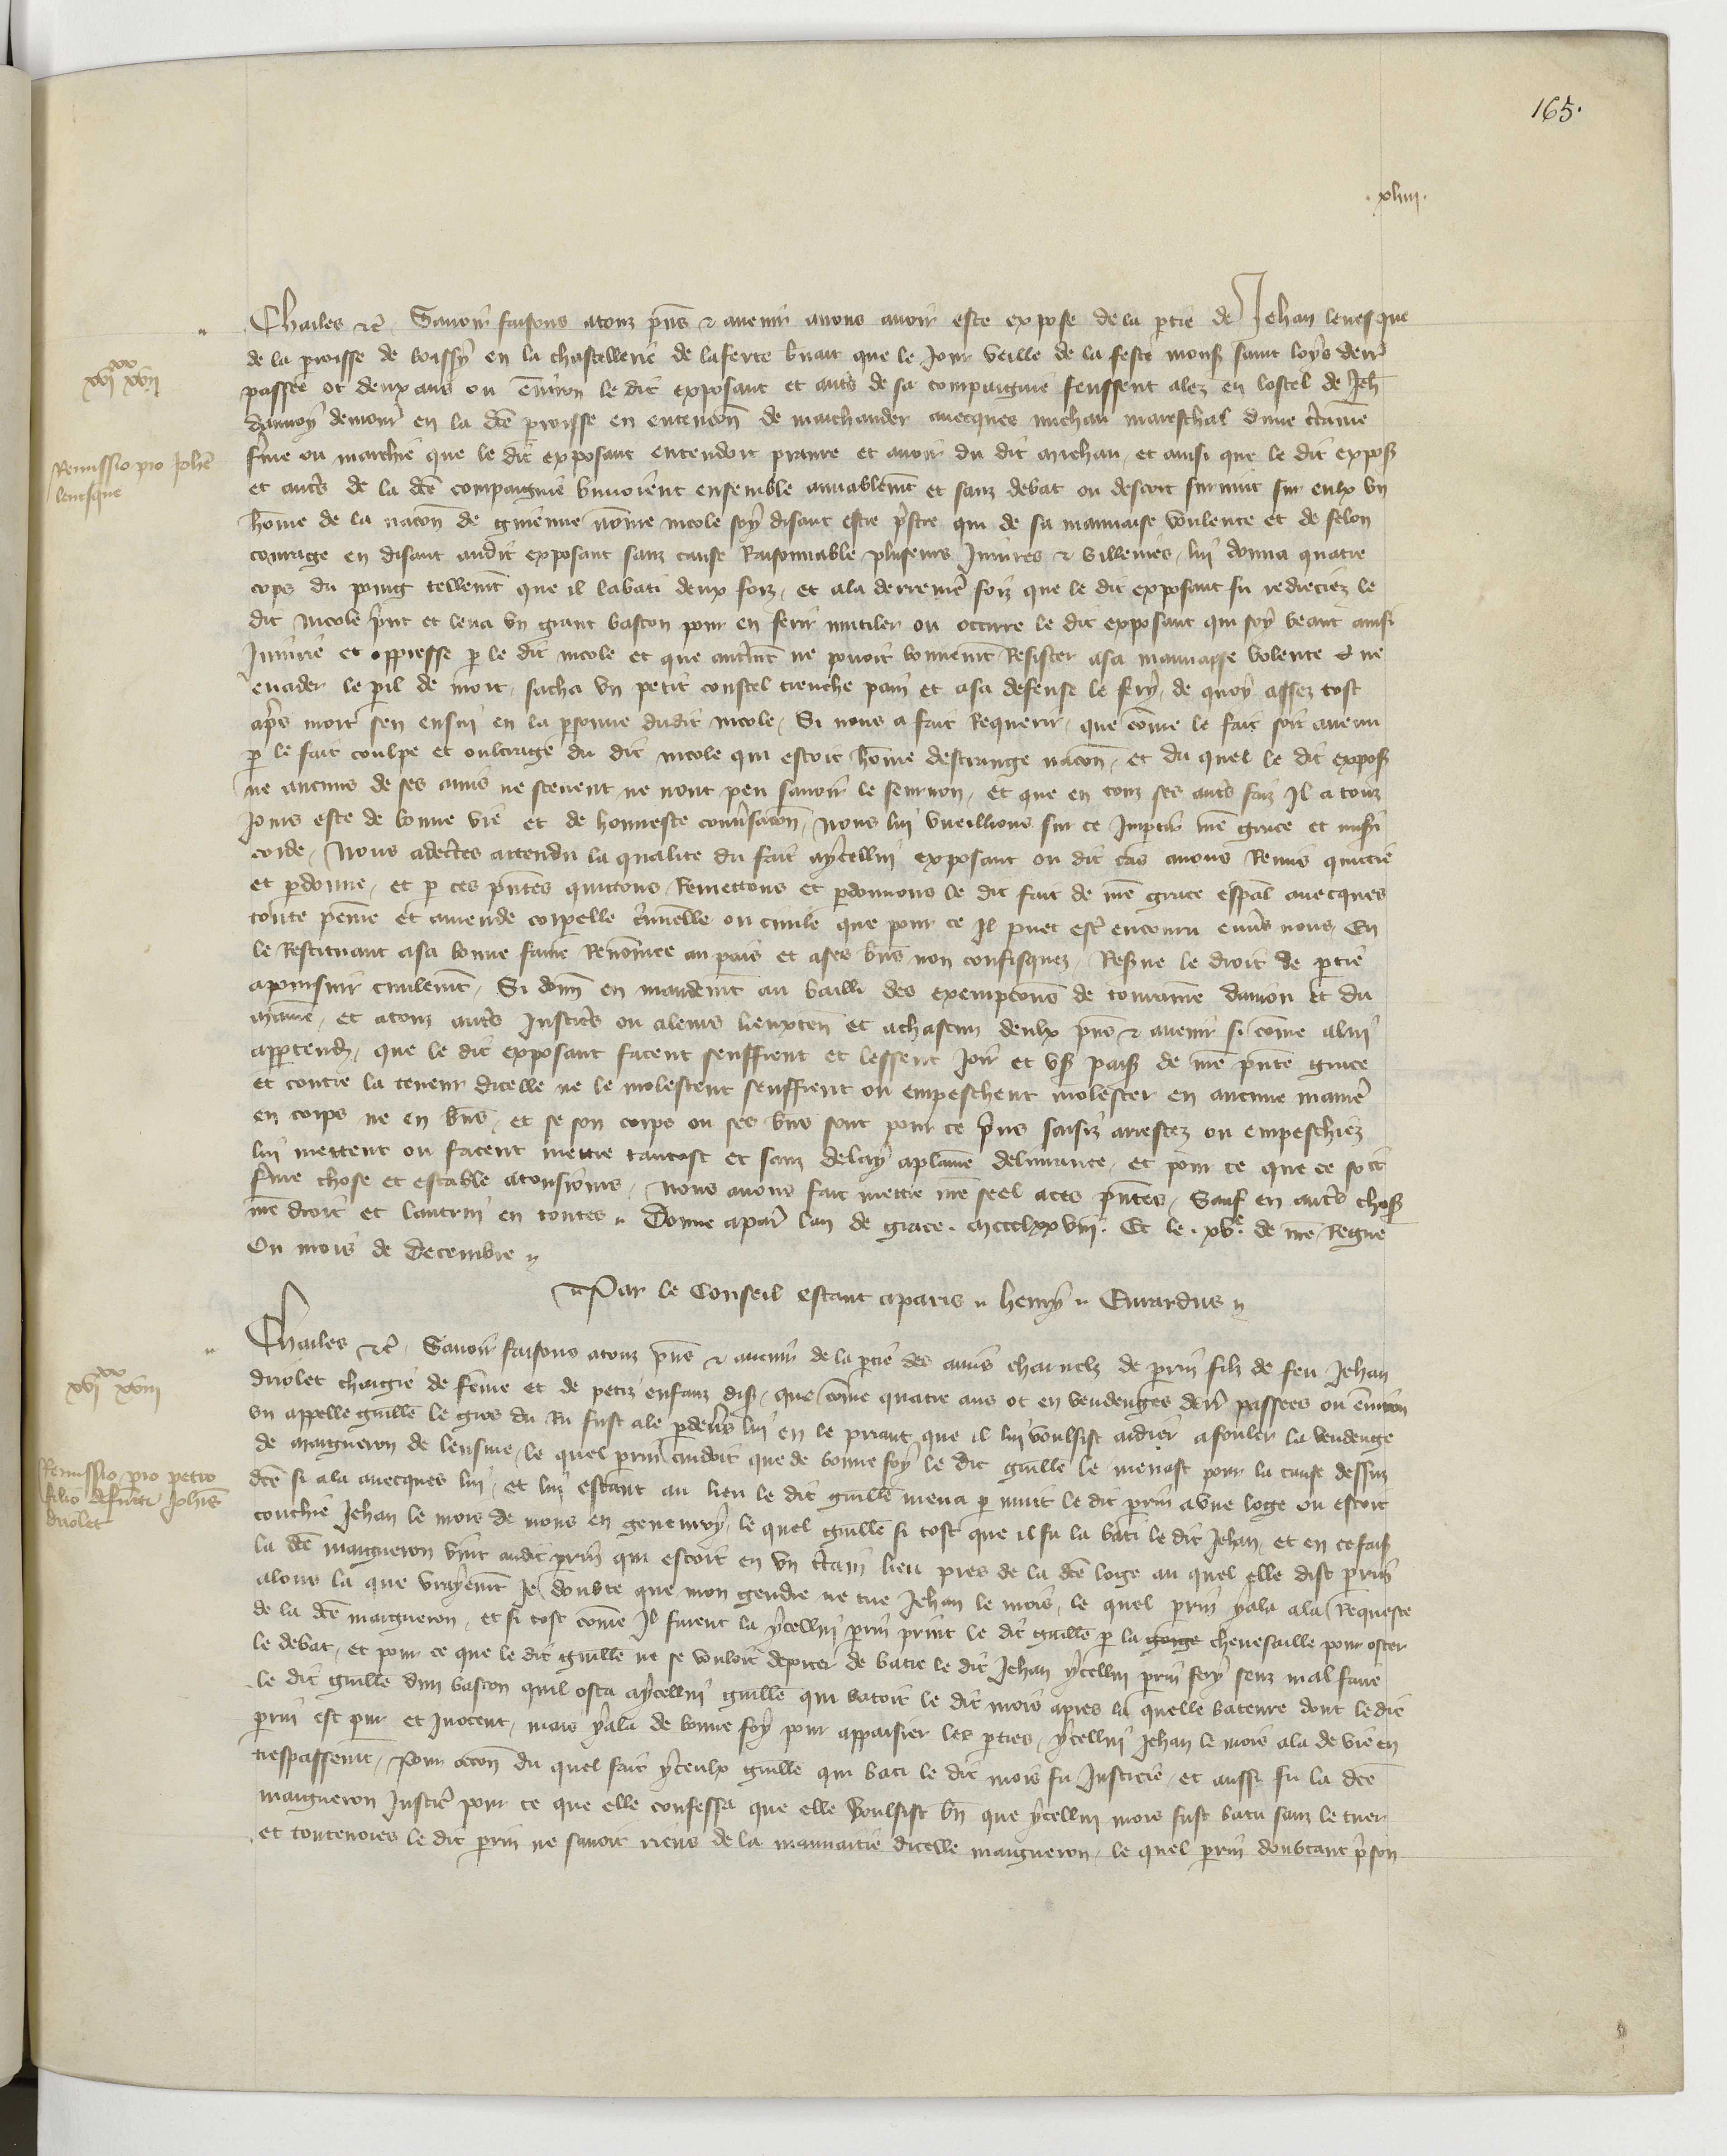 165.
.xliiii.
Charles etc. Savoir faisons a touz pñs et avenir avons avoir este expose de la ptie de Jehan levesque
xvi xx xvii
de la parroisse de boissy en la chastellerie de laferte bñart que le jour veille de la feste monsr saint loys derr
passee ot deux ans ou environ le dit exposant et autrs de sa compaignie feussent alez en lostel de Jeh
dannoy demour en la dce parroisse en entencon de marchander avecques michau mareschal dune ctaine
Remissio pro Johe
levesque
fme ou marchie que le dit exposant entendoit pranre et avoir du dit michau, et ainsi que le dit expos
et autrs de la dce compaignie buvoient ensemble amiablemt et sanz debat ou descort survint sur eulx un
home de la nacon de guienne nome nicole soy disant estre prstre qui de sa mauvaise voulente et de felon
courage en disant audit exposant sanz cause Raisonnable pluseurs Injures et villenies, lui donna quatre
cops du poing tellemt que il labati deux foiz, et ala derreniere foiz que le dit exposant fu redreciez le
dit Nicole print et leva un grant baston pour en ferir mutiler ou occirre le dit exposant qui soy veant ainsi
Injurie et oppresse p le dit nicole et que autremt ne povoit bonnemt Resister asa mauvaise volente et ne
evader le pil de mort, sacha un petit coustel trenche pain et asa defense le fery, de quoy assez tost
aprs mort sen ensui en la psonne dudit nicole, Si nous a fait Requerir, que come le fait soit avenu
p le fait coulpe et oultrage du dit nicole qui estoit home destrange nacon, et du quel le dit expos
ne aucuns de ses amis ne scevent ne nont peu savoir le seurnon, et que en touz ses autrs faiz Il a touz
jours este de bonne vie et de honneste conversacon, Nous lui vueillions sur ce Impartir nre grace et miseri
corde, Nous adectes attendu la qualite du fait aycellui exposant ou dit cas avons Remis quictie
et pdonne, et p ces pntes quictons Remettons et pdonnons le dit fait de nre grace espal avecques
toute peine et amende corpelle criminelle ou civile que pour ce Il puet estre encouru envrs nous, En
le Restituant asa bonne fame Renomee au pais et ases biens non confisquez, Reserve le droit de ptie
apoursuir civilemt, Si donn en mandemt au bailli des exempcons de touraine danjou et du
maine, et atouz autrs Justicrs ou aleurs lieuxten et achascun deulx pns et avenir si come alui
apptendra, que le dit exposant facent seuffrent et lessent joir et user paisiblement de nre pnte grace
et contre la teneur dicelle ne le molestent seuffrent ou empeschent molester en aucune maniere
en corps ne en biens, et se son corps ou ses biens sont pour ce prins saisiz arrestez ou empeschiez
lui mettent ou facent mettre tantost et sanz delay aplaine delivrance, et pour ce que ce soit
ferme chose et estable atousjours, Nous avons fait mettre nre seel aces pntes, Sauf en autrs choses
nre droit et lautrui en toutes. Donne apar lan de grace. mccclxxviii. Et le .xve. de nre Regne
Ou mois de Decembre
Par le Conseil estant aparis. henry. Evrardus
Charles etc. Savoir faisons atouz pns et avenir de la ptie des amis charnelz de perrin filz de feu Jehan
xvi xx xviii
driolet chargie de feme et de petiz enfanz dis, que come quatre ans ot en vendenges derr passees ou environ
un appelle guille le gros du Ru fust ale pdevrs lui en le priant que il lui voulsist aidier afouler la vendenge
de maigneron de leusme, le quel perrin cuidoit que de bonne foy le dit guille le menast pour la cause dessus
Remissio pro petro
filio defuncti Johis
driolet
dce si ala avecques lui, et lui estant au lieu le dit guille mena p nuit le dit perrin a une loge ou estoit
couchie Jehan le mois de mons en genevroy, le quel guille si tost que il fu la bati le dit Jehan, et en ce fais
la dce maigneron vint audit perrin qui estoit en un ctain lieu pres de la dce loige au quel elle dist perrin
alons la que vrayemt Je doubte que mon gendre ne tue Jehan le mois, le quel perrin yala ala Requeste
de la dce maigneron, et si tost come Il furent la ycellui perrin print le dit guille p la gorge chevesaille pour oster
le debat, et pour ce que le dit guille ne se vouloit deporter de batre le dit Jehan ycellui perrin fery senz mal faire
le dit guille dun baston quil osta aycellui guille qui batoit le dit mois apres la quelle bateure dont le dit
perrin est pur et Inocent, mais yala de bonne foy pour appaisier les pties, ycellui Jehan le mois ala de vie en
trespassemt, Pour occon du quel fait yceulx guille qui bati le dit mois fu Justicie, et aussi fu la dce
maigneron Justiciee pour ce que elle confessa que elle voulsist bn que ycellui mois fust batu sanz le tuer
et toutevoies le dit perrin ne savoit riens de la mauvaitie dicelle maigneron, le quel perrin doubtant prison